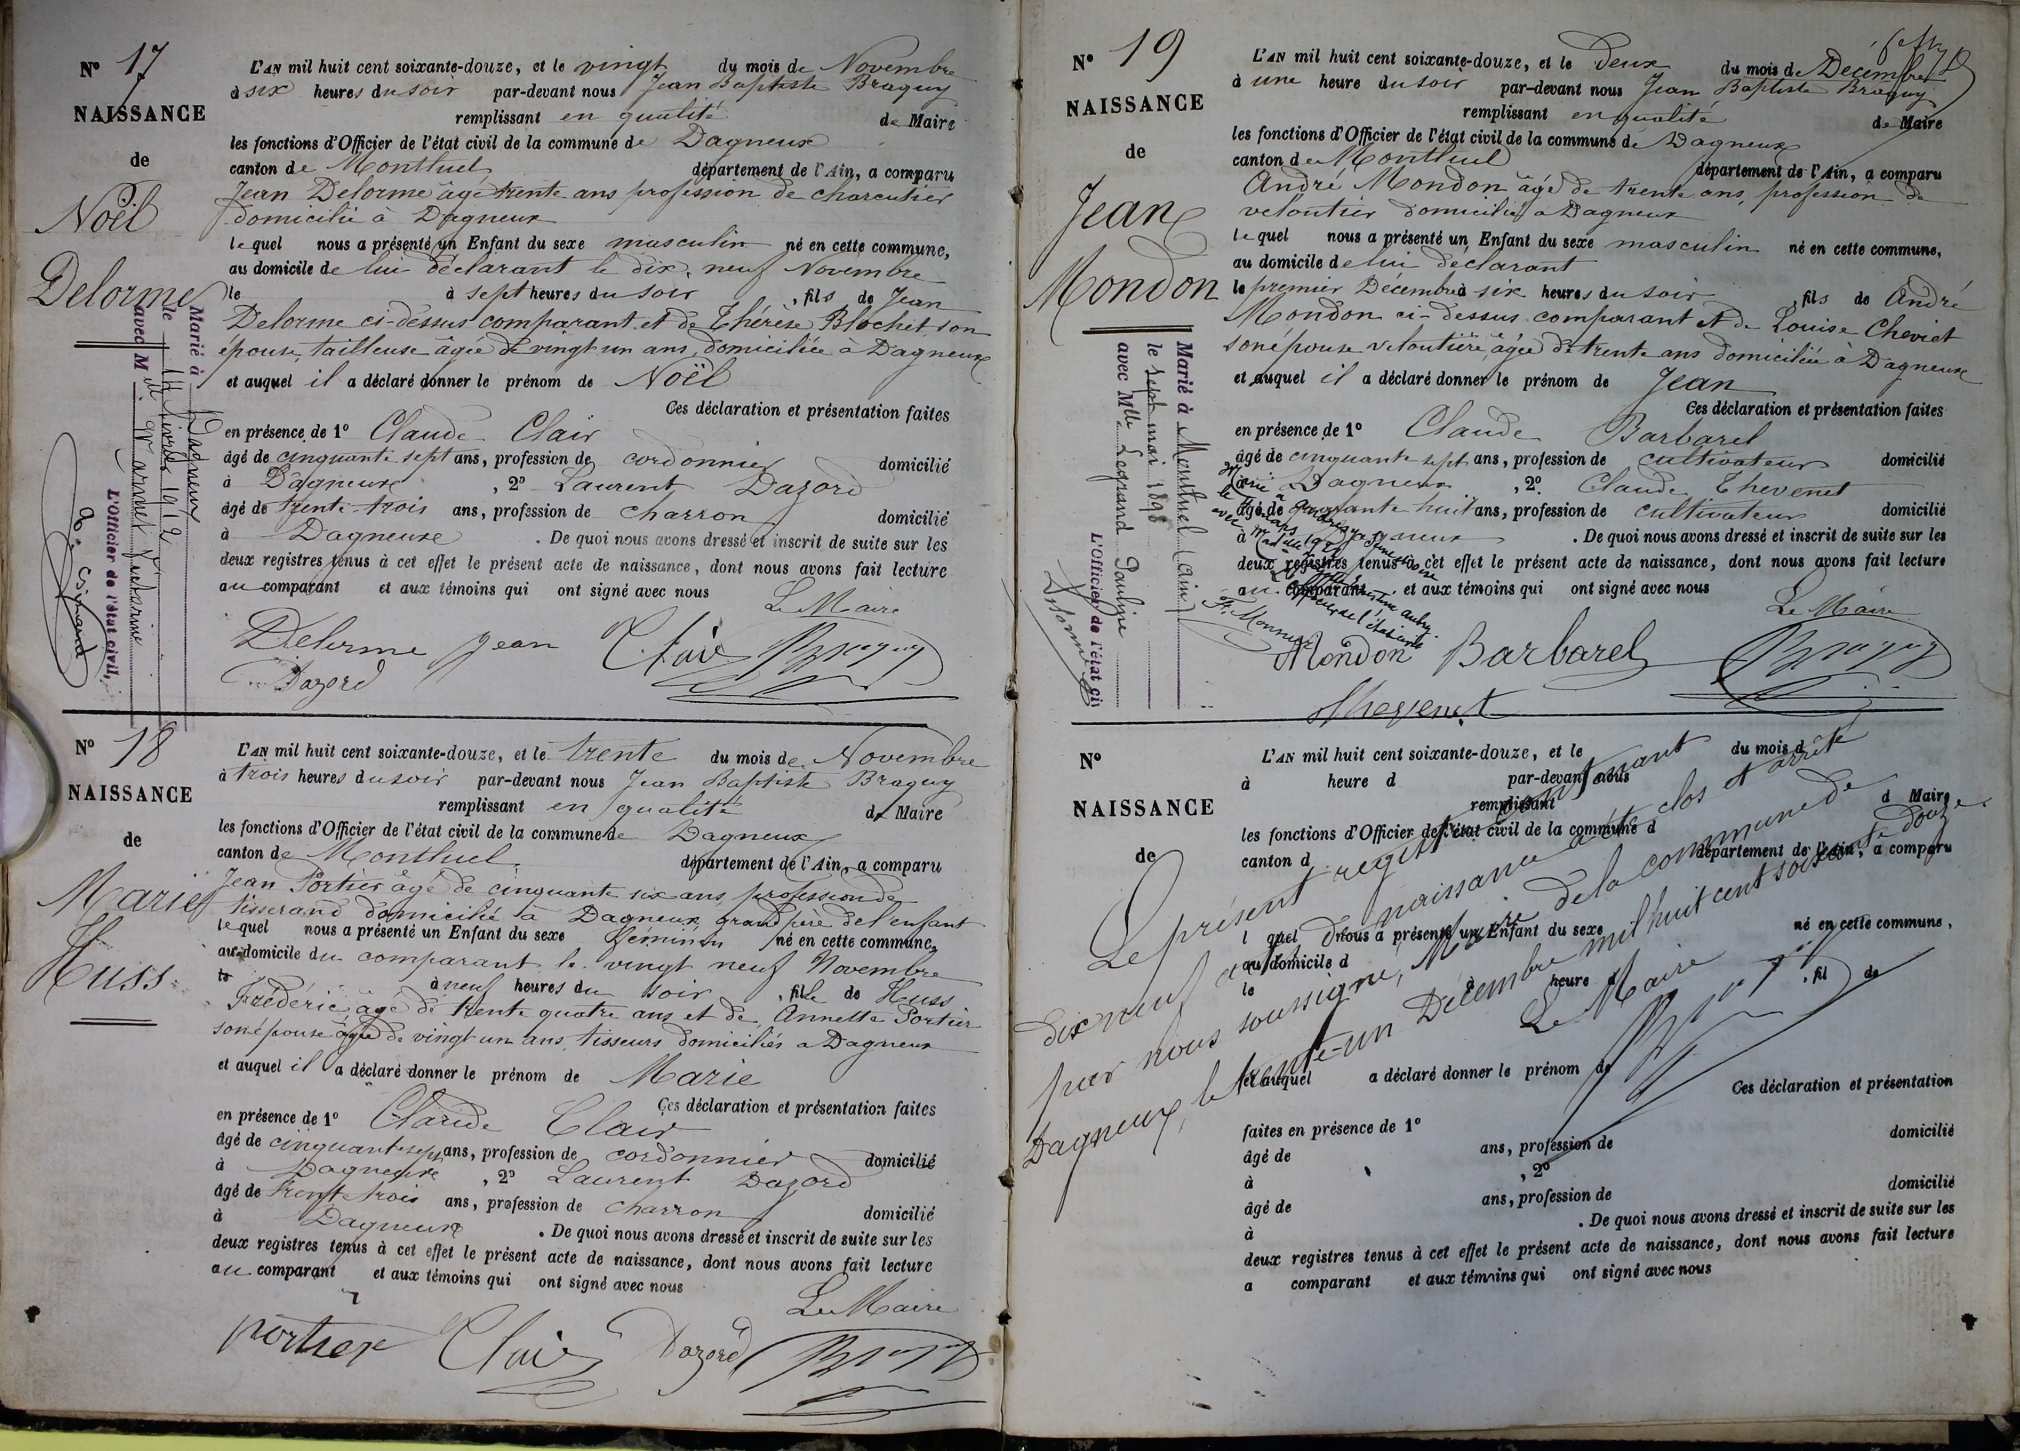 N° 17
NAISSANCE
de
Noël
Delorme
Marié à Dagneux
le 14 1912
avec Mlle Warnet
L'Officier de l'état civil,
L'AN mil huit cent soixante-douze, et le vingt du mois de Novembre
à six heures du soir par-devant nous Jean Baptiste Braguy
remplissant en qualité de Maire
les fonctions d'Officier de l'état civil de la commune de Dagneux
canton de Montluel département de l'Ain, a comparu
Jean Delorme âgé trente ans profession de charcutier
domicilié à Dagneux
lequel nous a présenté un Enfant du sexe masculin né en cette commune,
au domicile de lui déclarant le dix, neuf Novembre
le à sept heures du soir, fils de Jean
Delorme ci-dessus comparant et de Thérèse Blochet son
épouse, tailleuse âgée de vingt un ans, domiciliée à Dagneux
et auquel il a déclaré donner le prénom de Noël
Ces déclaration et présentation faites
en présence de 1° Claude Clair
âgé de cinquante sept ans, profession de cordonnier domicilié
à Dagneux, 2° Laurent Dazord
âgé de trente-trois ans, profession de charron domicilié
à Dagneux. De quoi nous avons dressé et inscrit de suite sur les
deux registres tenus à cet effet le présent acte de naissance, dont nous avons fait lecture
au comparant et aux témoins qui ont signé avec nous
Le Maire
Delorme Jean Clair Braguy
Dazord
N° 18
NAISSANCE
de
Marie
Huss
L'AN mil huit cent soixante-douze, et le trente du mois de Novembre
à trois heures du soir par-devant nous Jean Baptiste Braguy
remplissant en qualité de Maire
les fonctions d'Officier de l'état civil de la commune de Dagneux
canton de Montluel département de l'Ain, a comparu
Jean Portier âgé de cinquante six ans profession de
tisserand domicilié à Dagneux grand père de l'enfant
lequel nous a présenté un Enfant du sexe féminin né en cette commune,
au domicile du comparant le vingt neuf Novembre
le à neuf heures du soir, fille de Huss
Frédéric âgé de trente quatre ans et de Annette Portier
son épouse âgée de vingt un ans, tisseurs domiciliés a Dagneux
et auquel il a déclaré donner le prénom de Marie
Ces déclaration et présentation faites
en présence de 1° Claude Clair
âgé de cinquante sept ans, profession de cordonnier domicilié
à Dagneux, 2° Laurent Dazord
âgé de trente trois ans, profession de charron domicilié
à Dagneux. De quoi nous avons dressé et inscrit de suite sur les
deux registres tenus à cet effet le présent acte de naissance, dont nous avons fait lecture
au comparant et aux témoins qui ont signé avec nous
Le Maire
portier Clair Dazord Braguy
N° 19
NAISSANCE
de
Jean
Mondon
Marié à Montluel (Ain)
le sept mai 1898
avec Mlle Legrand Pauline
L'Officier de l'état ci
L'AN mil huit cent soixante-douze, et le deux du mois de Décembre
à une heure du soir par-devant nous Jean Baptiste Braguy
remplissant en qualité de Maire
les fonctions d'Officier de l'état civil de la commune de Dagneux
canton de Montluel département de l'Ain, a comparu
André Mondon âgé de trente ans, profession de
veloutier domicilié a Dagneux
lequel nous a présenté un Enfant du sexe masculin né en cette commune,
au domicile de lui déclarant
le premier Décembre à six heures du soir, fils de André
Mondon ci-dessus comparant et de Louise Cheviet
son épouse veloutière, âgée de trente ans domiciliée à Dagneux
et auquel il a déclaré donner le prénom de Jean
Ces déclaration et présentation faites
en présence de 1° Claude Barbarel
âgé de cinquante sept ans, profession de cultivateur domicilié
à Dagneux, 2° Claude Thevenet
âgé de cinquante huit ans, profession de cultivateur domicilié
à Dagneux. De quoi nous avons dressé et inscrit de suite sur les
deux registres tenus à cet effet le présent acte de naissance, dont nous avons fait lecture
au comparant et aux témoins qui ont signé avec nous
Le Maire
Mondon Barbarel Braguy
Thevenet
N°
NAISSANCE
de
L'AN mil huit cent soixante-douze, et le du mois d
à heure d par-devant nous
remplissant d Maire
les fonctions d'Officier de l'état civil de la commune d
canton d département de l'Ain, a comparu
l quel nous a présenté un Enfant du sexe né en cette commune,
au domicile d
le à heure d, fil de
et auquel a déclaré donner le prénom de
Ces déclaration et présentation
faites en présence de 1°
âgé de ans, profession de domicilié
à, 2°
âgé de ans, profession de domicilié
à. De quoi nous avons dressé et inscrit de suite sur les
deux registres tenus à cet effet le présent acte de naissance, dont nous avons fait lecture
a comparant et aux témoins qui ont signé avec nous
Le présent registre contenant
dix neuf actes de naissance a été clos et arrêté
par nous soussigné, Maire de la commune de
Dagneux, le trente-un Décembre mil huit cent soixante douze.
Le Maire
Braguy